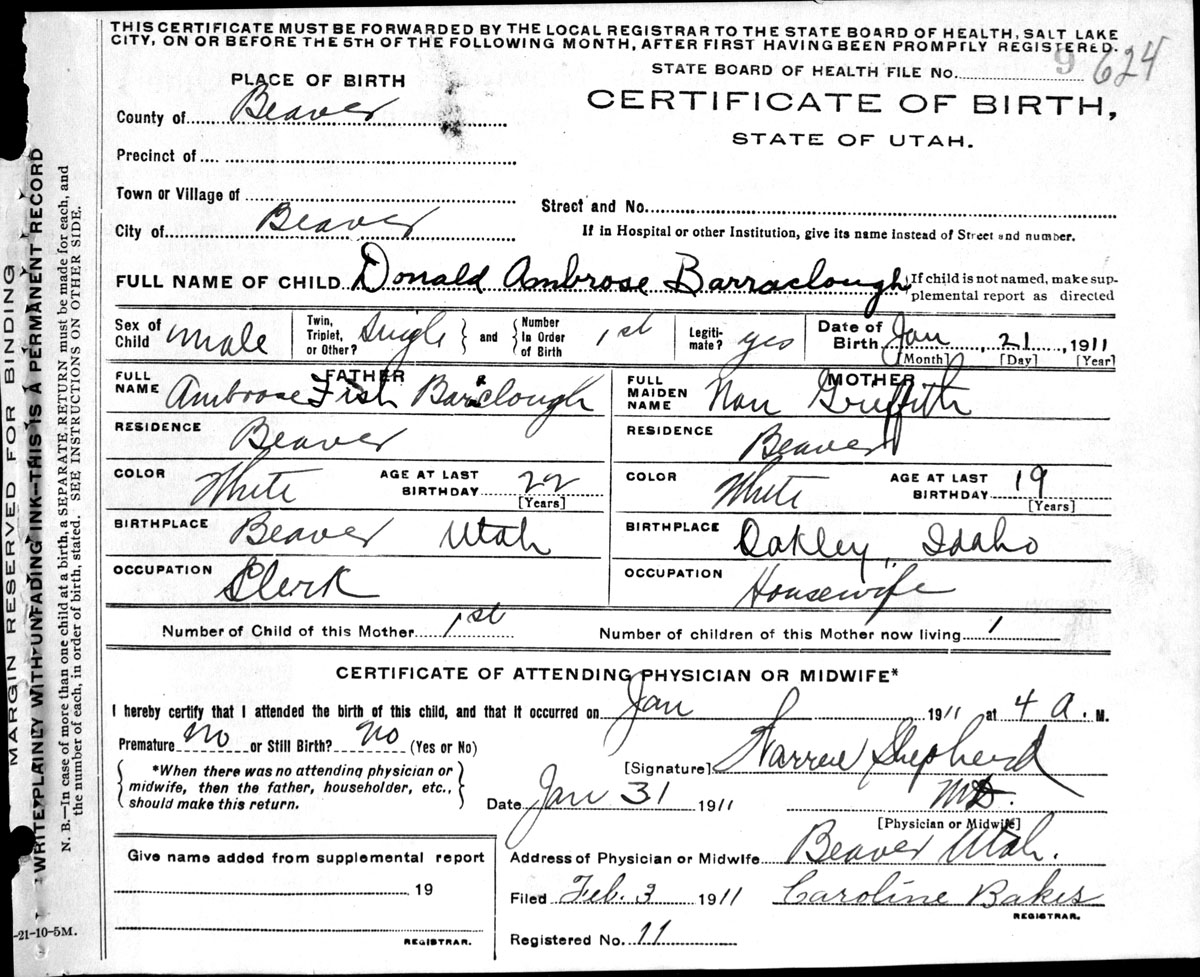 THIS CERTIFICATE MUST BE FORWARDED BY THE LOCAL REGISTRAR TO THE STATE BOARD OF HEALTH, SALT LAKE
CITY, ON OR BEFORE THE 5TH OF THE FOLLOWING MONTH, AFTER FIRST HAVING BEEN PROMPTLY REGISTERED.
STATE BOARD OF HEALTH FILE No. 9 624
PLACE OF BIRTH
CERTIFICATE OF BIRTH,
STATE OF UTAH.
County of Beaver
Precinct of
Town or Village of
Street and No.
City of Beaver
If in Hospital or other Institution, give its name instead of Street and number.
FULL NAME OF CHILD Donald Ambrose Barraclough
If child is not named, make sup-
plemental report as directed
Sex of Child male
Twin, Triplet, or Other? Single and Number In Order of Birth 1st
Legiti-mate? yes
Date of Birth Jan, 21, 1911
[Month] [Day] [Year]
FATHER
FULL NAME Ambrose Fish Barraclough
RESIDENCE Beaver
COLOR White AGE AT LAST BIRTHDAY 22
[Years]
BIRTHPLACE Beaver Utah
OCCUPATION Clerk
MOTHER
FULL MAIDEN NAME Nan Griffith
RESIDENCE Beaver
COLOR White AGE AT LAST BIRTHDAY 19
[Years]
BIRTHPLACE Oakley, Idaho
OCCUPATION Housewife
Number of Child of this Mother 1st Number of children of this Mother now living 1
CERTIFICATE OF ATTENDING PHYSICIAN OR MIDWIFE*
I hereby certify that I attended the birth of this child, and that it occurred on Jan 1911 at 4 A. M.
Premature No or Still Birth? No (Yes or No)
*When there was no attending physician or
midwife, then the father, householder, etc.,
should make this return.
[Signature] Warren Shepherd
Date Jan 31 1911 MD.
[Physician or Midwife]
Give name added from supplemental report
19
REGISTRAR.
Address of Physician or Midwife Beaver Utah.
Filed Feb. 3 1911 Caroline Bakes
REGISTRAR.
Registered No. 11
MARGIN RESERVED FOR BINDING
WRITE PLAINLY WITH UNFADING INK—THIS IS A PERMANENT RECORD
N. B.—In case of more than one child at a birth, a SEPARATE RETURN must be made for each, and
the number of each, in order of birth, stated. SEE INSTRUCTIONS ON OTHER SIDE.
-21-10-5M.